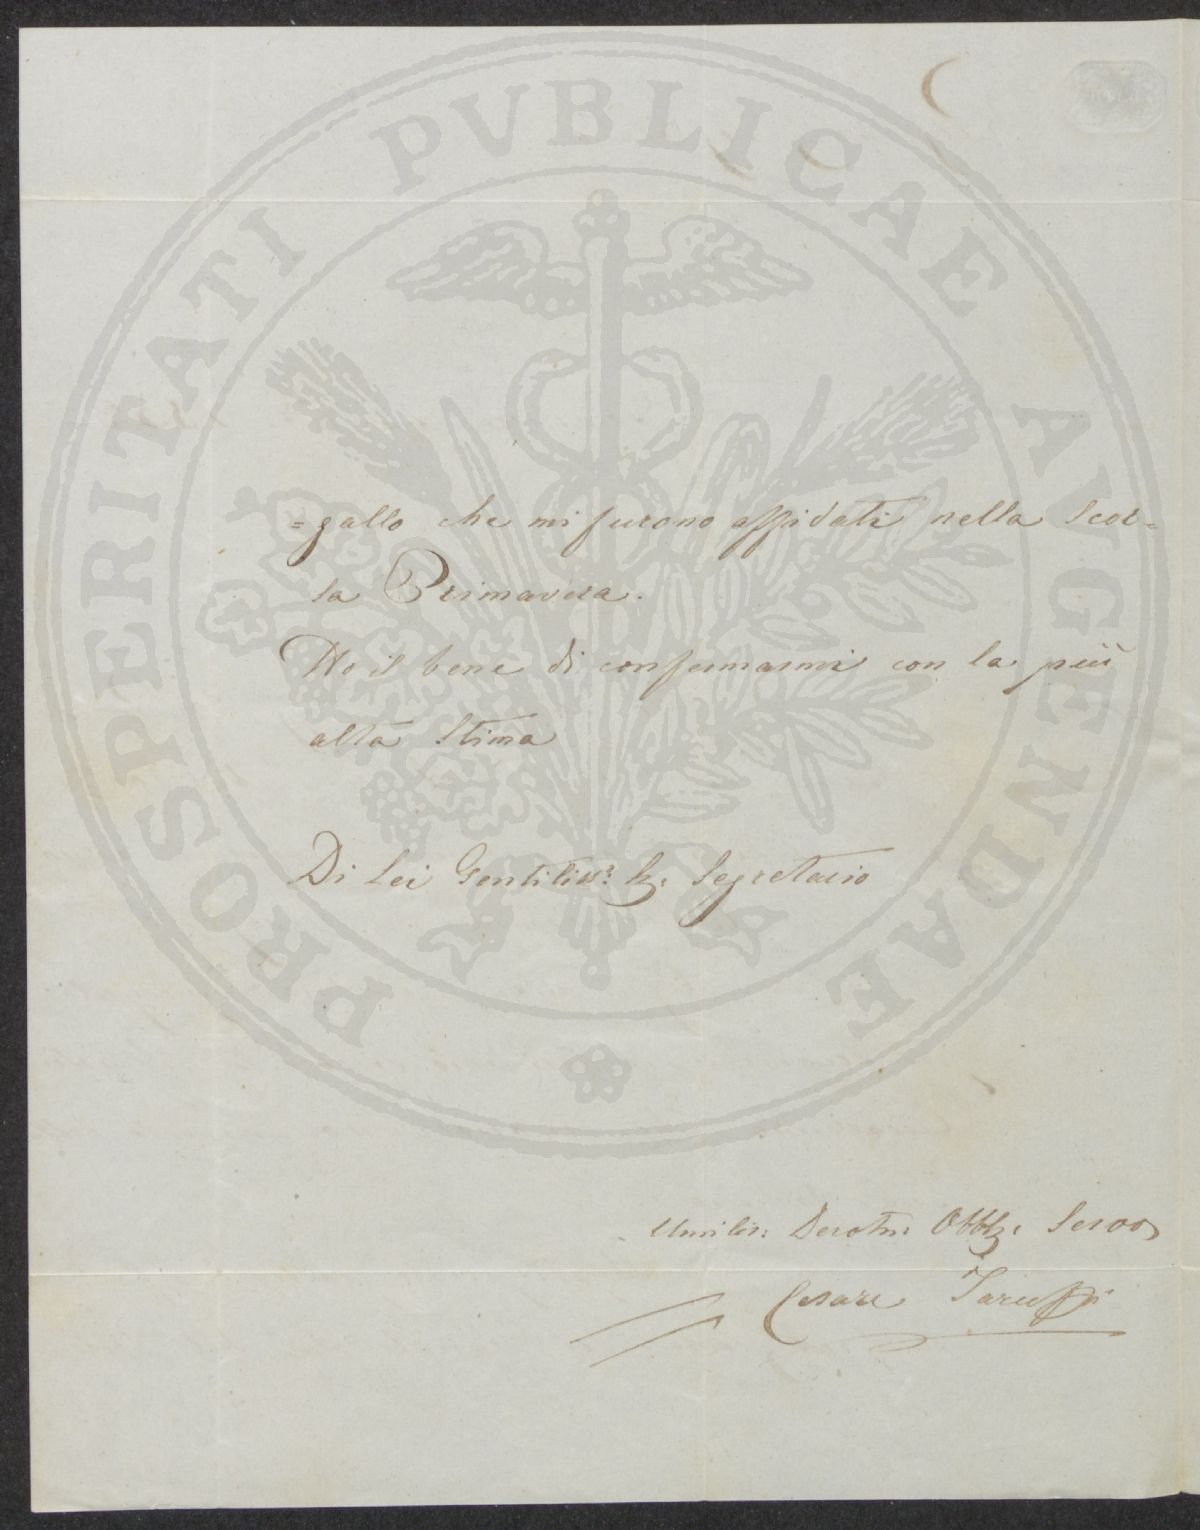 PROSPERITATI PVBLICAE AVGENDAE
=gallo che mi furono affidati nella Scor=
sa Primavera.
Ho il bene di confermarmi con la più
alta Stima
Di Lei Gentiliss.º Sg. Segretario
Umilis: Devotm: Obblg: Servo
Cesare Taruffi